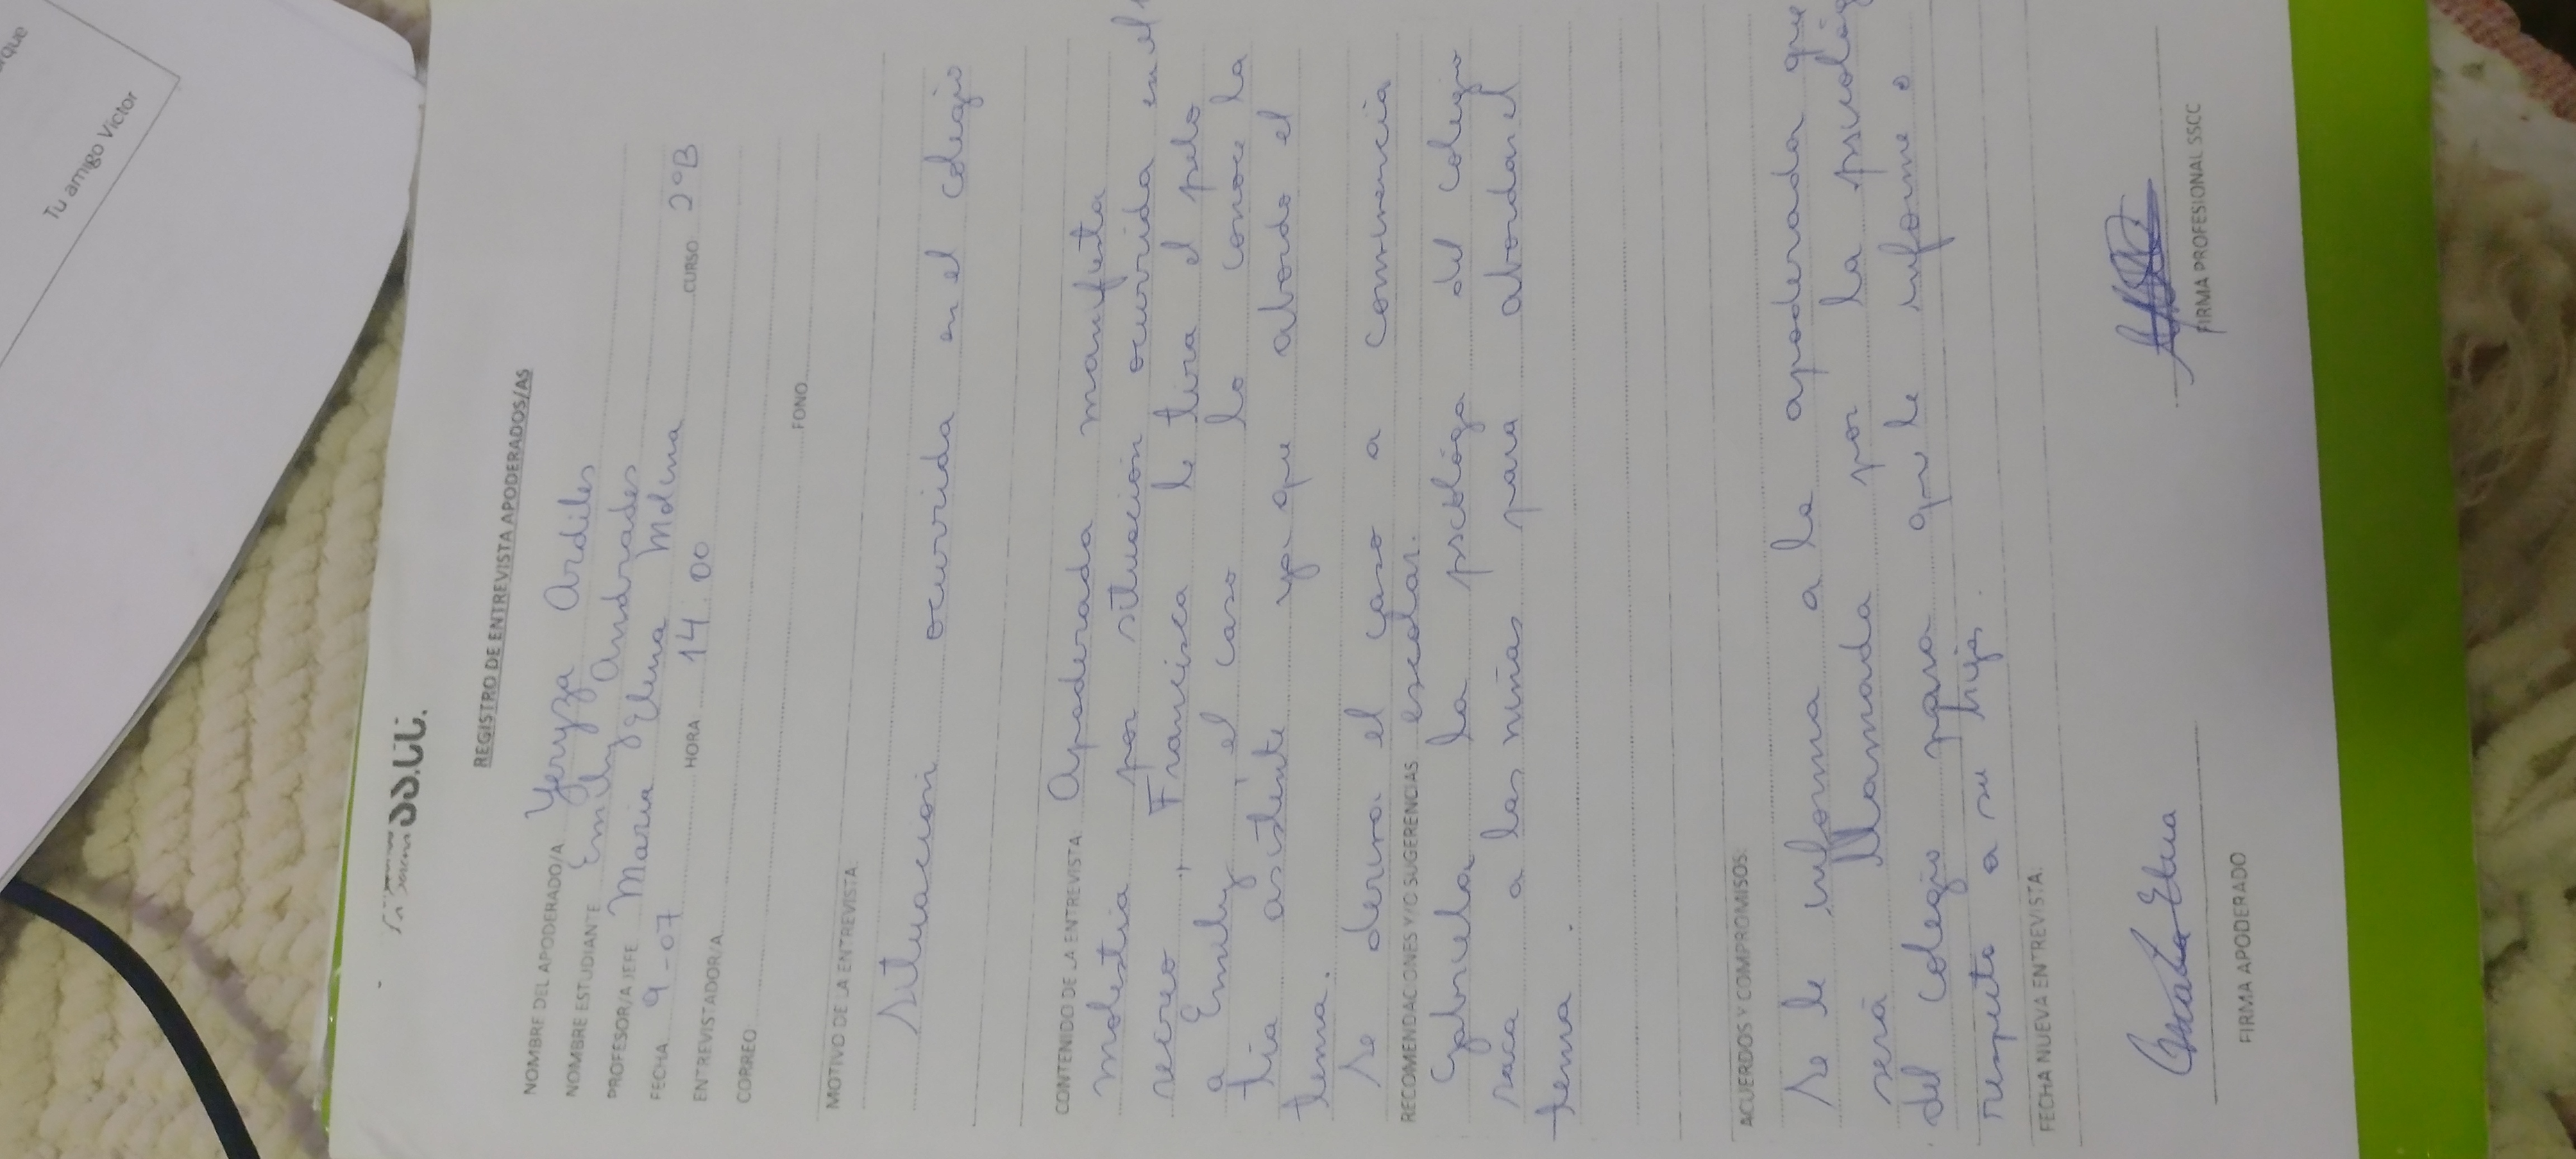 SS.CC.
REGISTRO DE ENTREVISTA APODERADOS/AS
NOMBRE DEL APODERADO/A Yeryza Ardiles
NOMBRE ESTUDIANTE Emily Andrades
PROFESOR/A JEFE Maria Elena Molina
FECHA 9-07 HORA 14.00 CURSO 2ºB
ENTREVISTADOR/A
CORREO FONO
MOTIVO DE LA ENTREVISTA
Situacion ocurrida en el colegio
CONTENIDO DE LA ENTREVISTA Apoderada manifiesta
molestia por situación ocurrida en el
recreo, Francisca le tira el pelo
a Emily, el caso lo conoce la
tía asistente ya que abordo el
tema.
Se deriva el caso a convivencia
RECOMENDACIONES Y/O SUGERENCIAS escolar.
Gabriela la psicológa del colegio
saca a las niñas para abordar el
tema.
ACUERDOS Y COMPROMISOS:
Se le informa a la apoderada que
será llamada por la psicológ
del colegio para que le informe
respeto a su hija.
FECHA NUEVA ENTREVISTA:
FIRMA APODERADO
FIRMA PROFESIONAL SSCC
que
Tu amigo Víctor